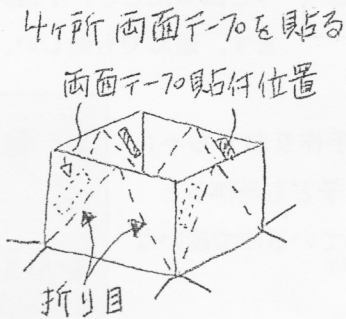 4ヶ所 両面テープを貼る
両面テープ貼付位置
折り目